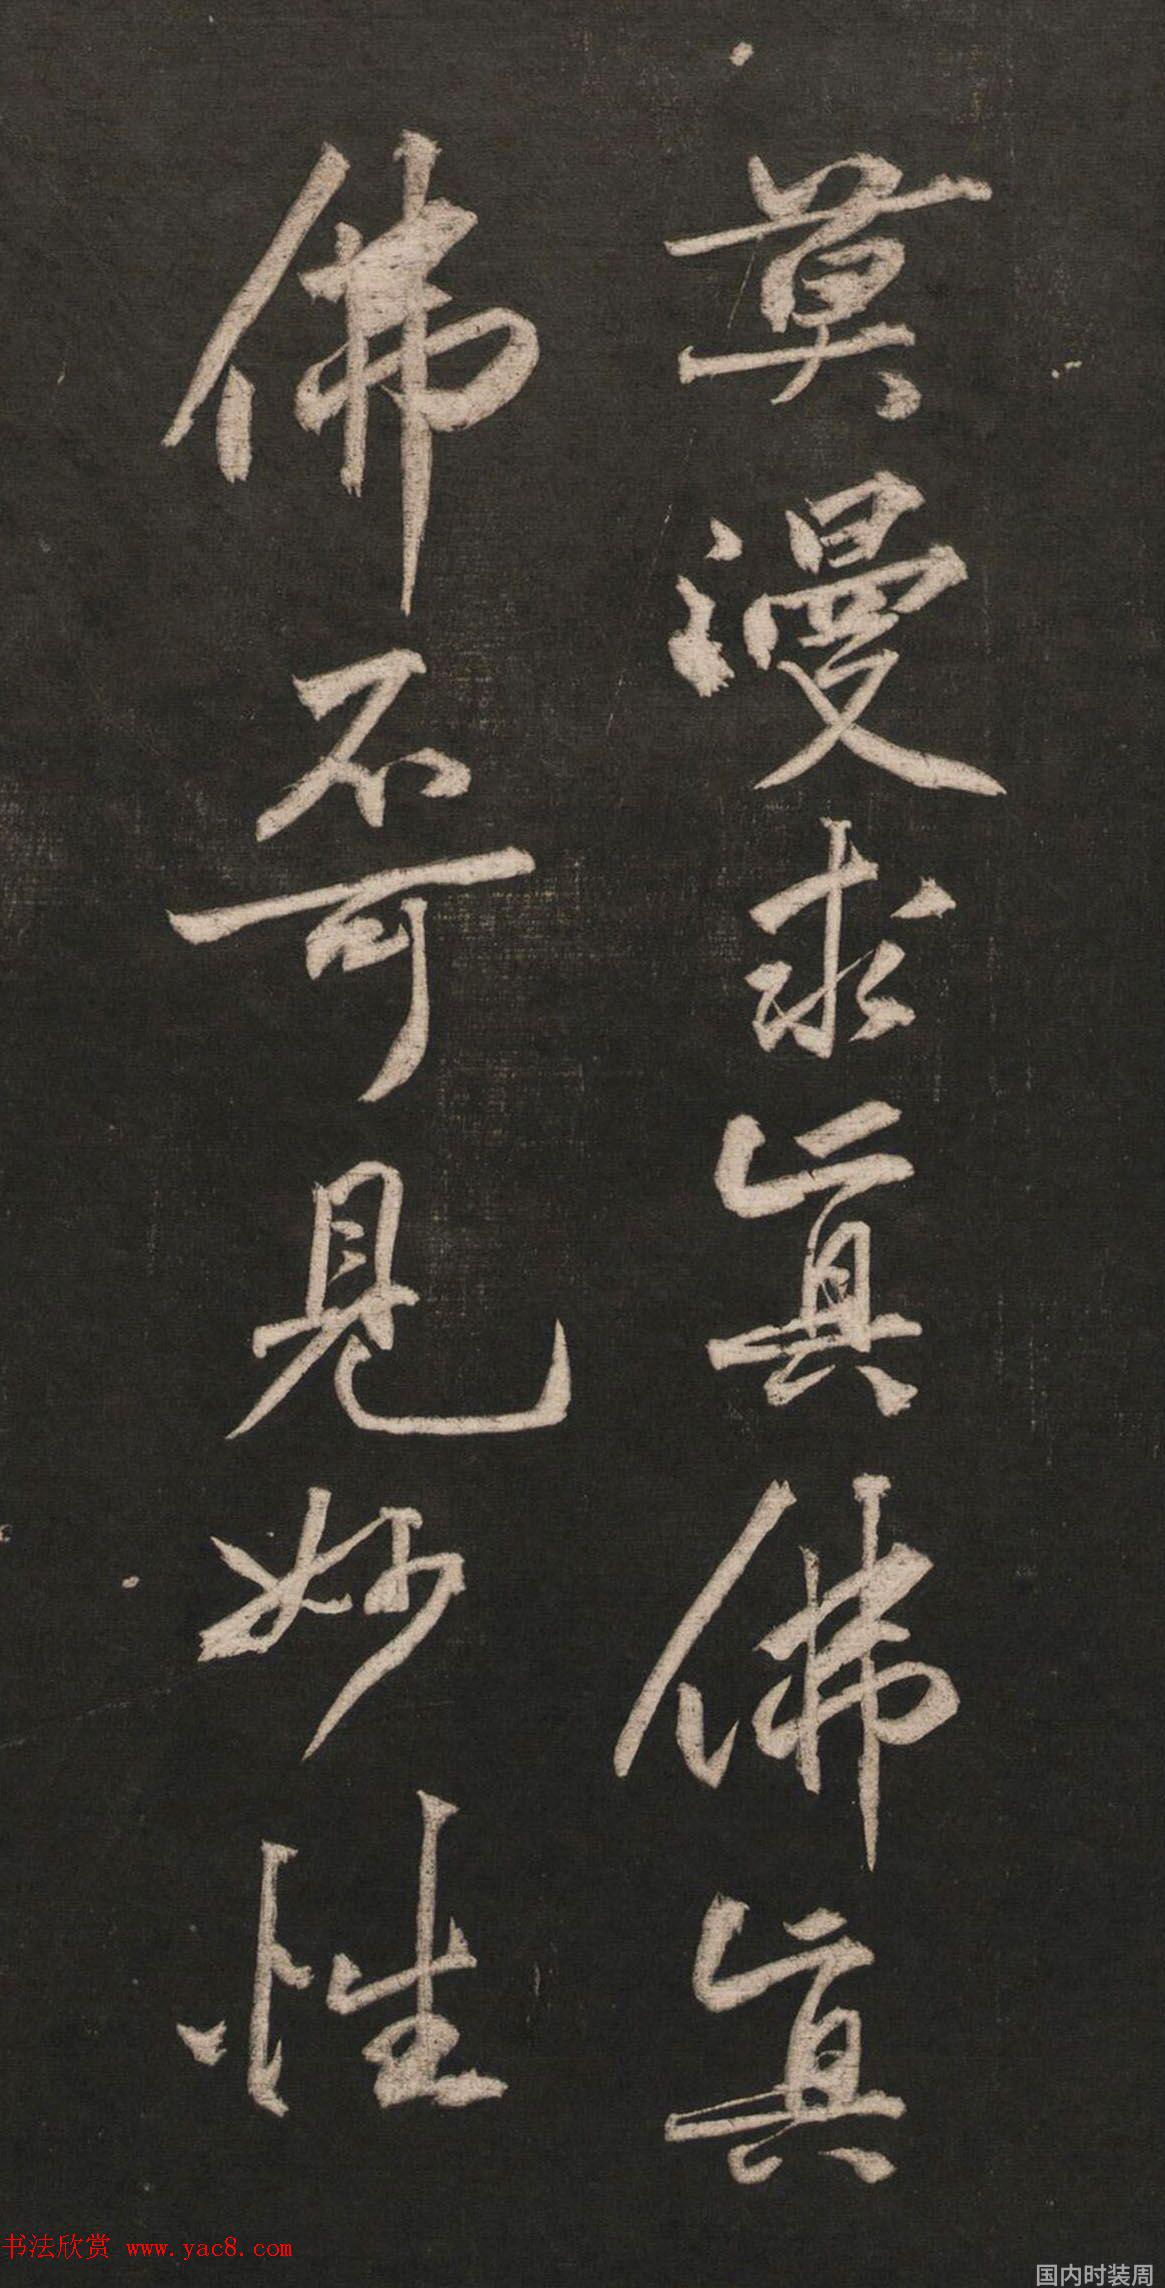 莫漫求真佛真
佛不可見妙性
书法欣赏 www.yac8.com
国内时装周